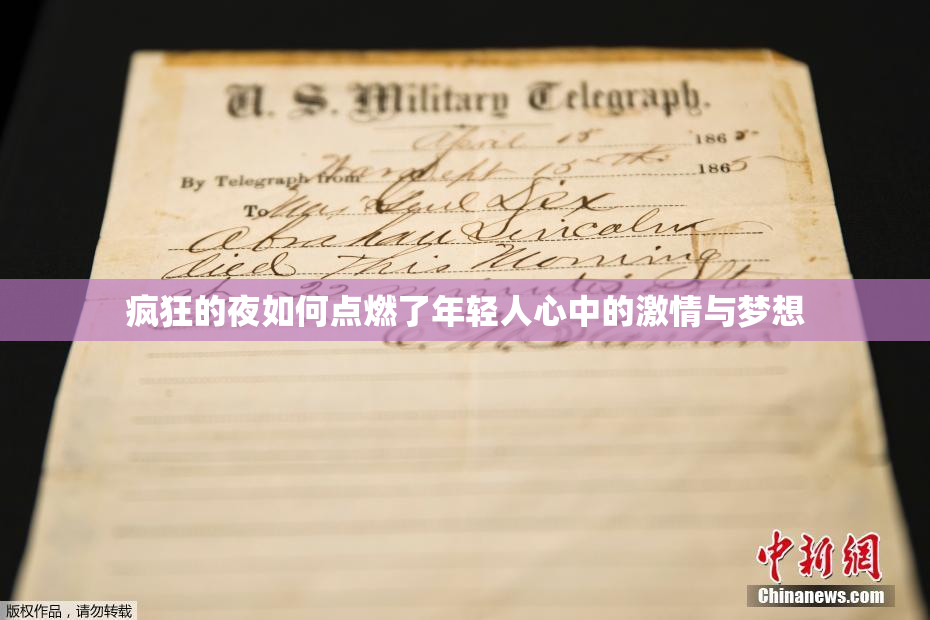 U. S. Military Telegraph.
April 15 1865
By Telegraph from War Dept 15th 1865
To Maj Genl Dix
Abraham Lincoln
died This Morning
at 22 minutes after
疯狂的夜如何点燃了年轻人心中的激情与梦想
E. M. Stanton
中新网
Chinanews.com
版权作品，请勿转载